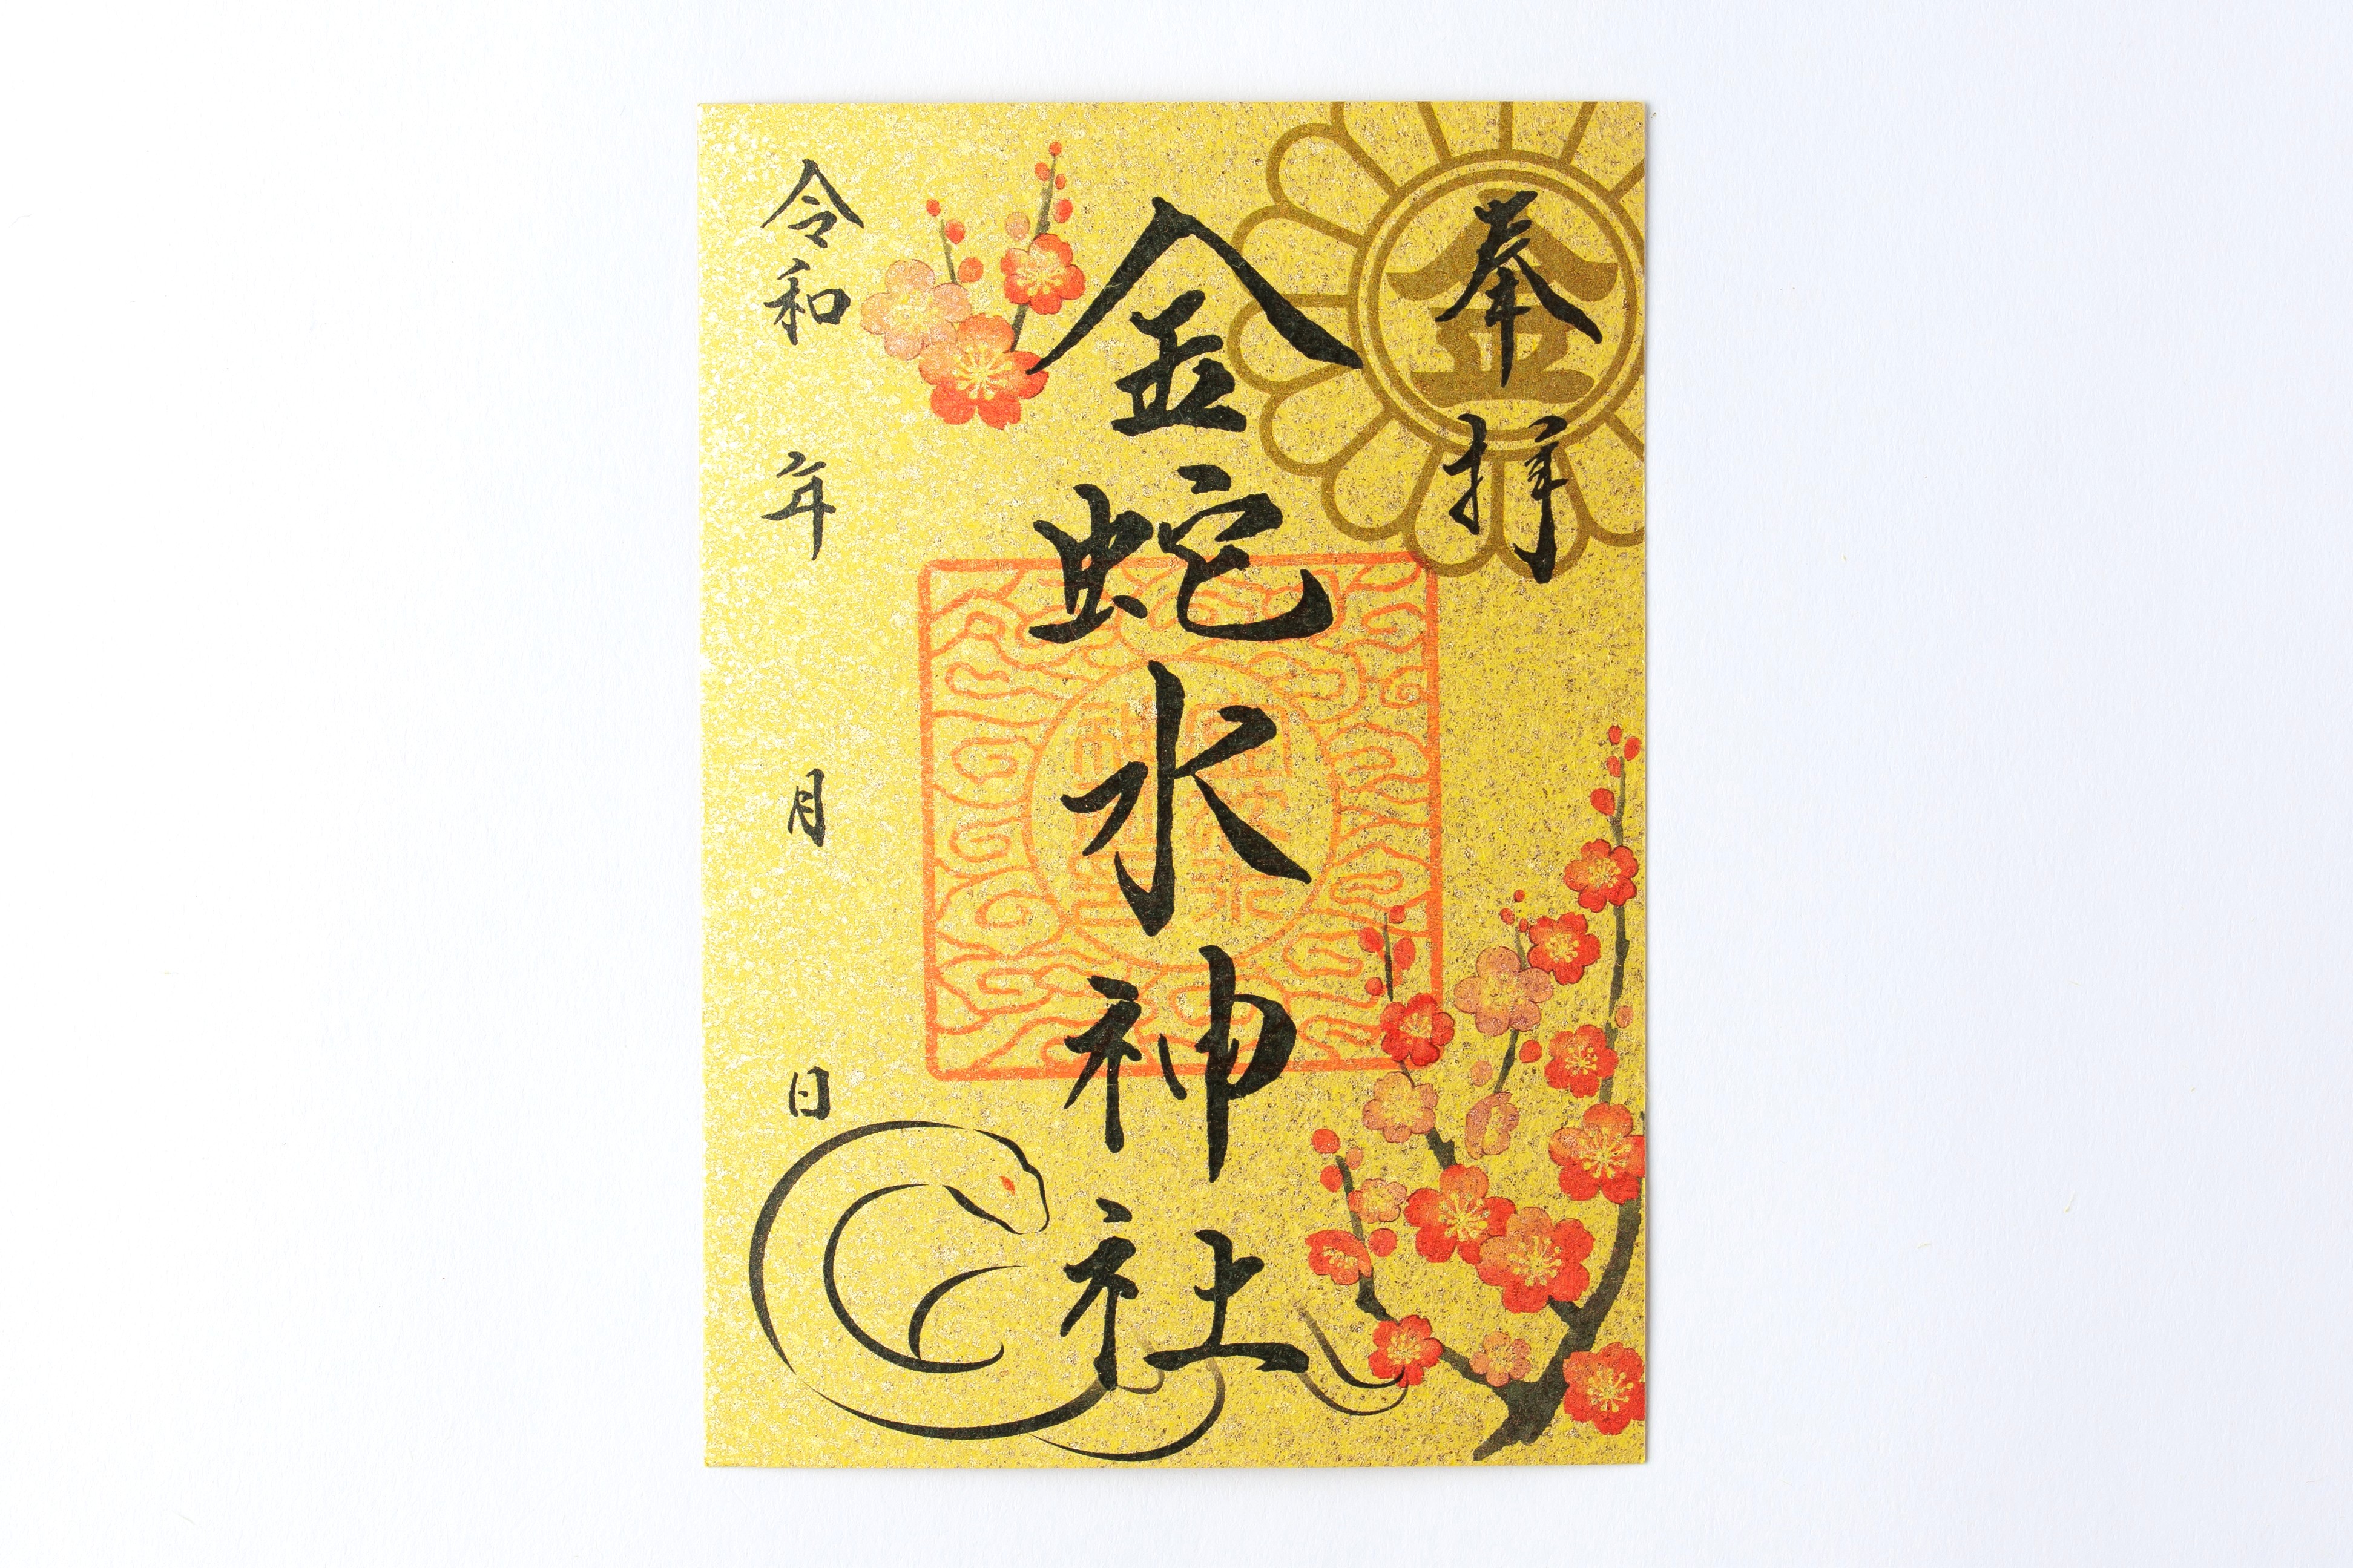 奉拝
金
金蛇水神社
令和 年 月 日